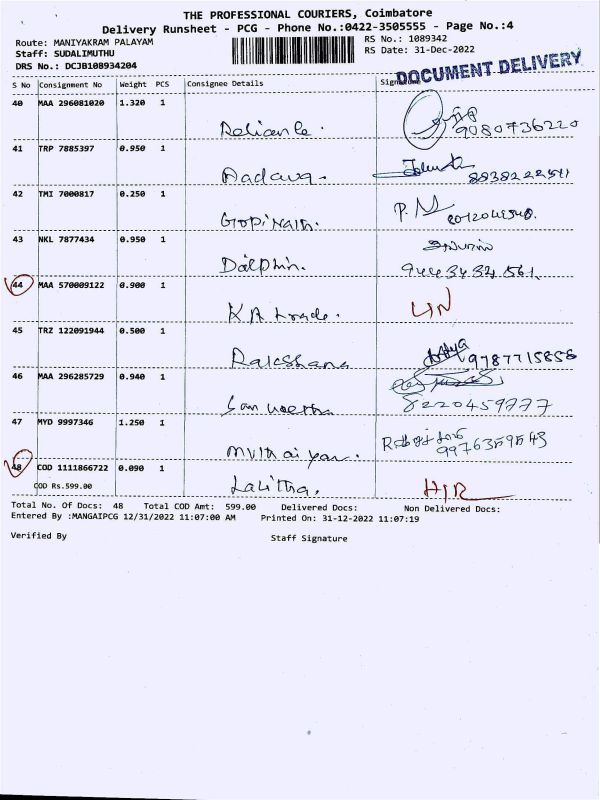 THE PROFESSIONAL COURIERS, Coimbatore
Delivery Runsheet - PCG - Phone No.:0422-3505555 - Page No.:4
Route: MANIYAKRAM PALAYAM
RS No.: 1089342
Staff: SUDALIMUTHU
RS Date: 31-Dec-2022
DRS No.: DCJB108934204
DOCUMENT DELIVERY
S No Consignment No Weight PCS Consignee Details
40 MAA 296081020 1.320 1 Reliance. 9080736220
41 TRP 7885397 0.950 1
42 TMI 7000817 0.250 1 Gopinath. P.M
43 NKL 7877434 0.950 1 Dolphin. 9443434561.
44 MAA 570009122 0.900 1 KR trade.
45 TRZ 122091944 0.500 1 Rakshana 9787715858
46 MAA 296285729 0.940 1 8220459777
47 MYD 9997346 1.250 1 9976359543
48 COD 1111866722 0.090 1 Lalitha.
COD Rs.599.00
Total No. Of Docs: 48 Total COD Amt: 599.00 Delivered Docs: Non Delivered Docs:
Entered By :MANGAIPCG 12/31/2022 11:07:00 AM Printed On: 31-12-2022 11:07:19
Verified By Staff Signature